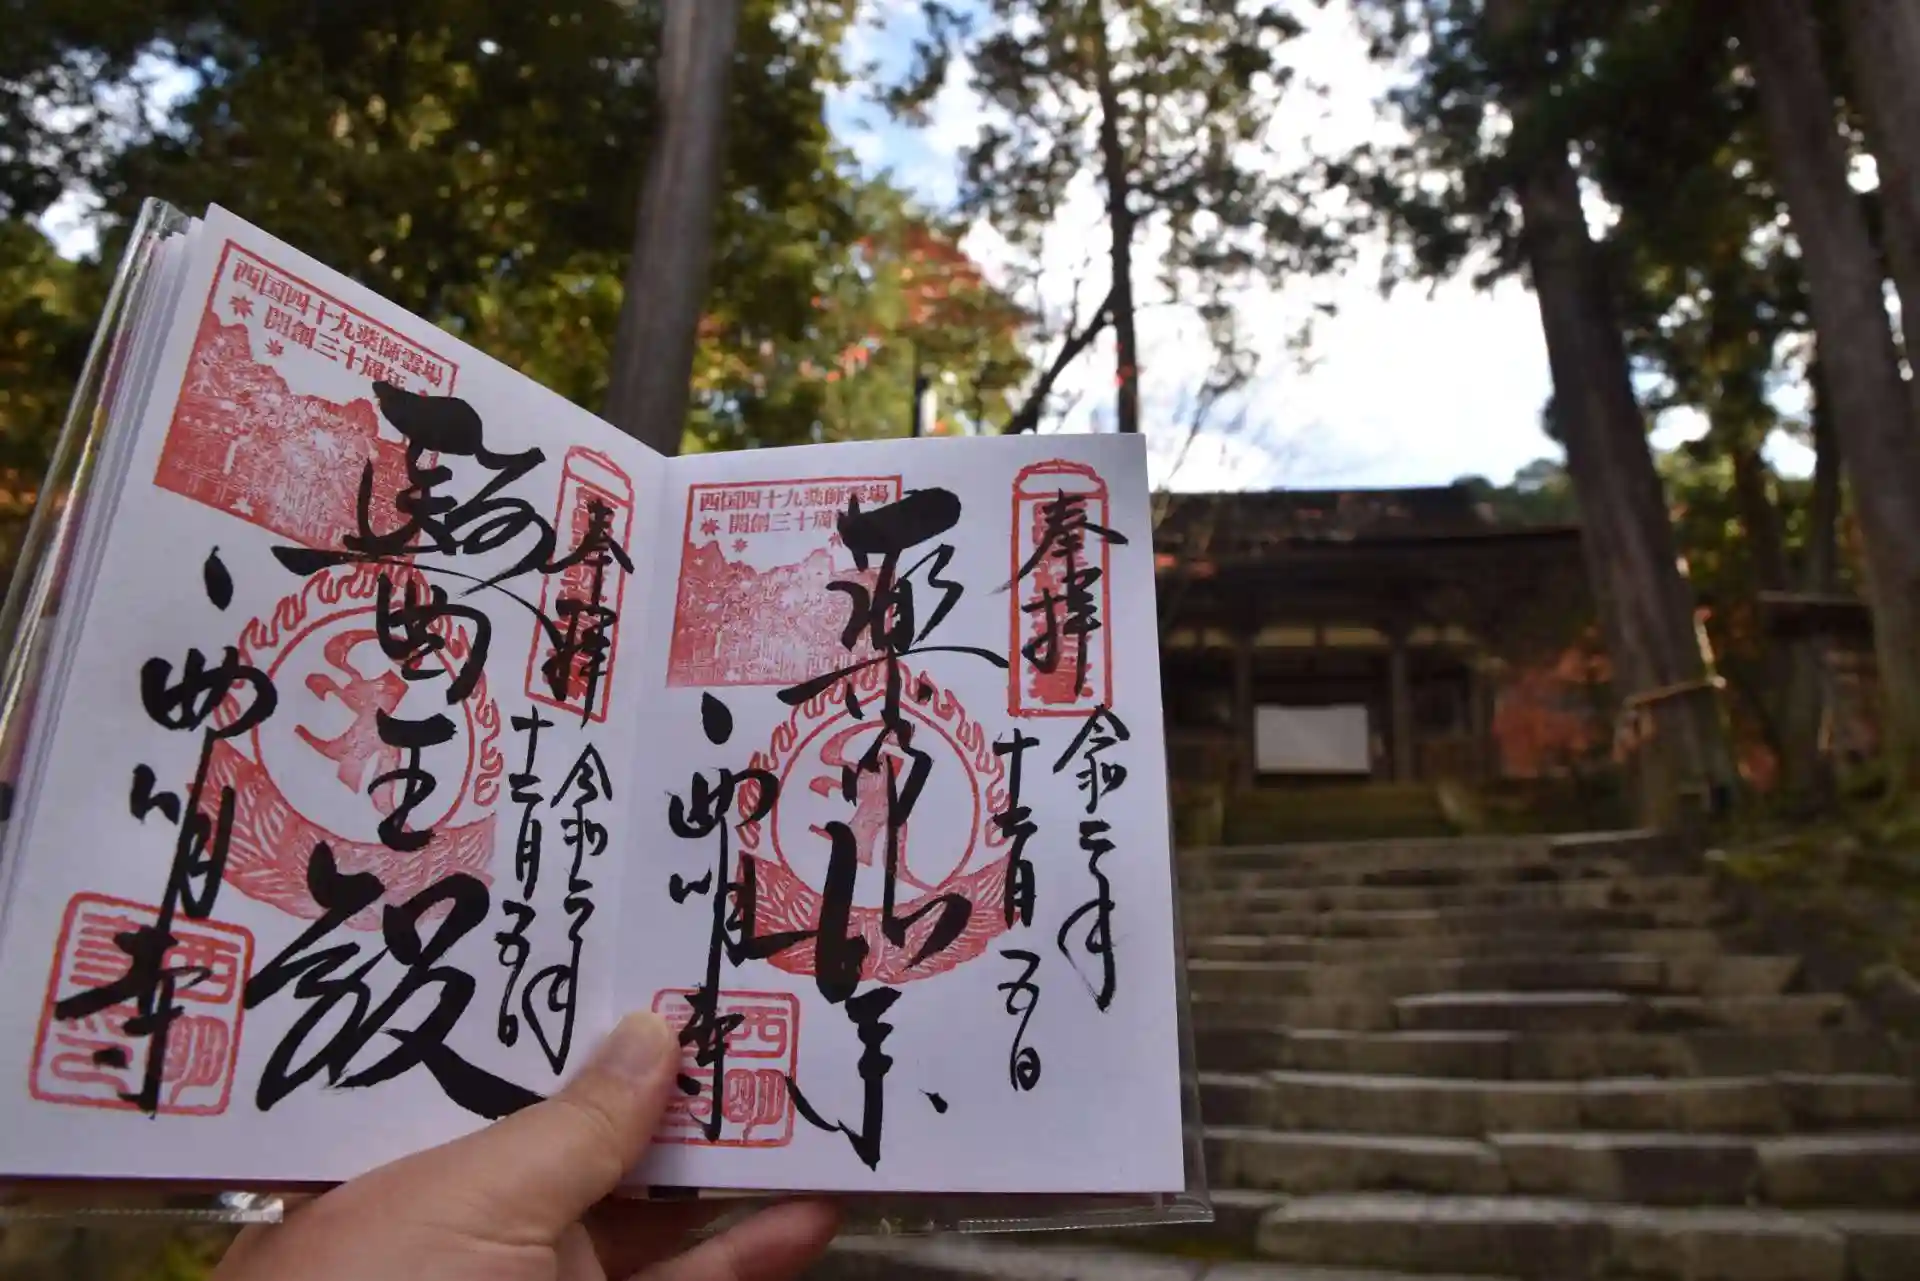 西国四十九薬師霊場
開創三十周
奉拝
令和二年
十二月五日
薬師如来
西明寺
西国四十九薬師霊場
開創三十周年
奉拝
令和二年
十二月五日
醫王殿
西明寺